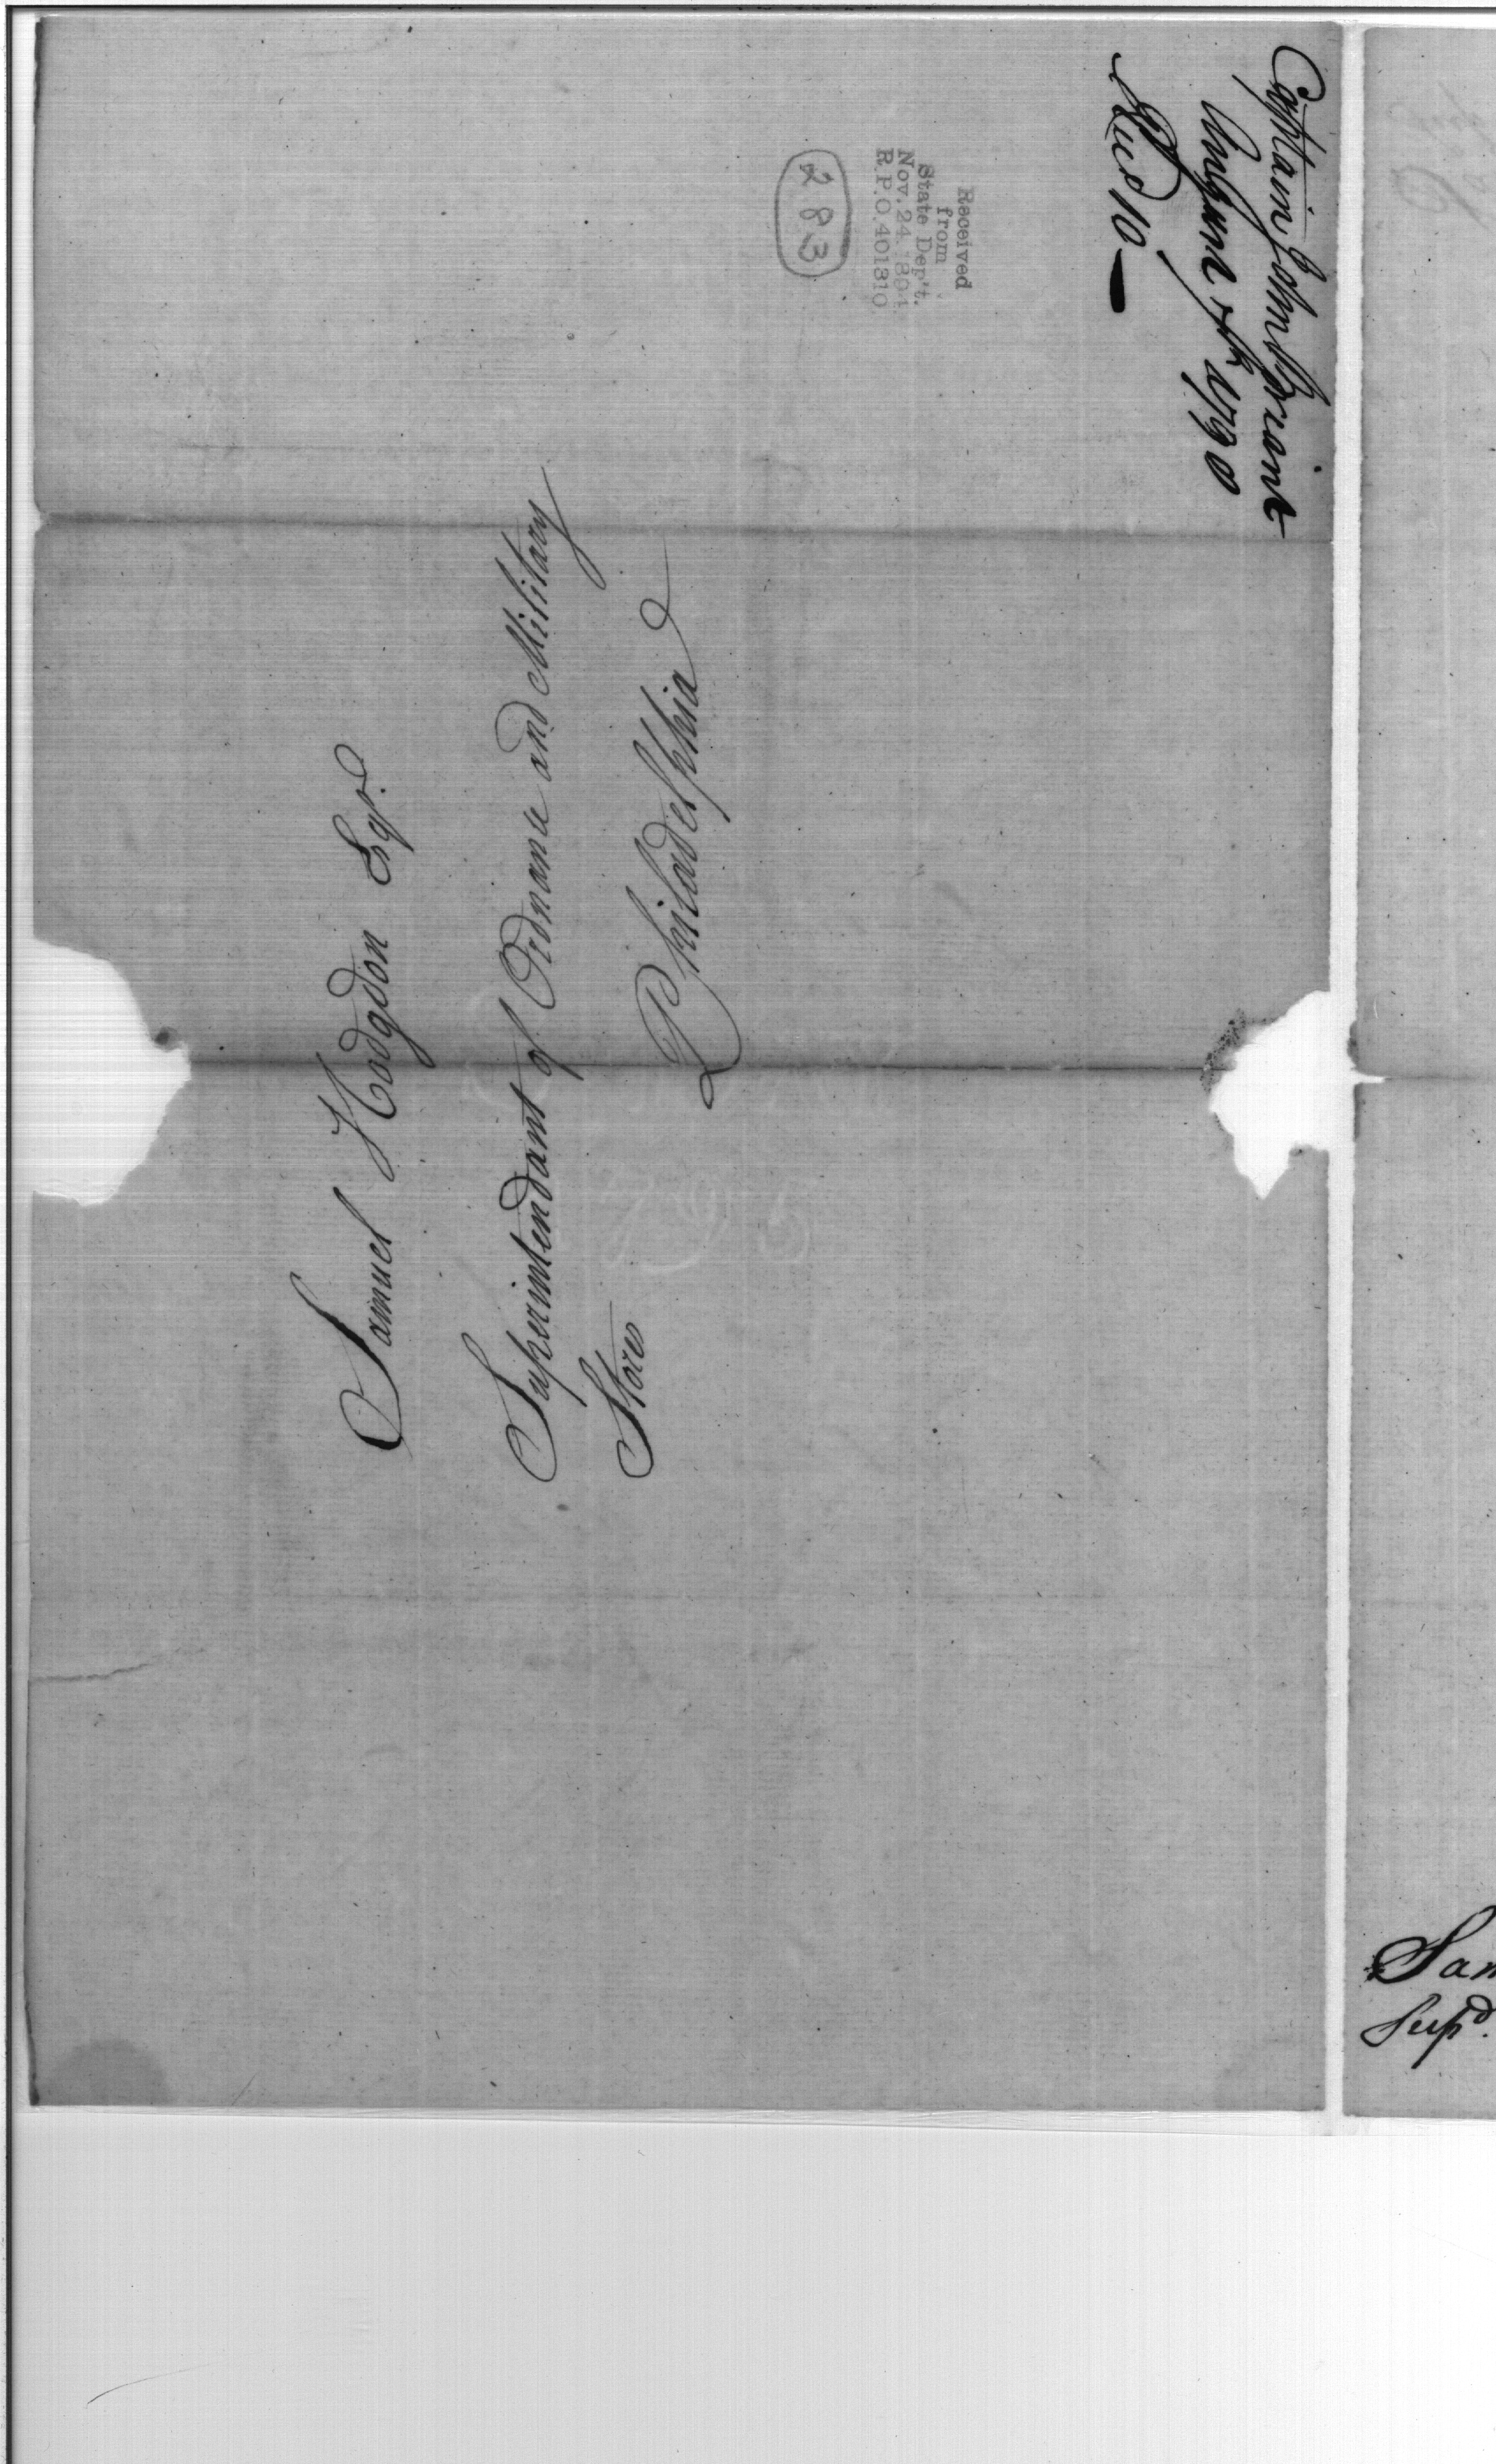 Captain John Bryant
August 7th 1790
Rec'd 10 —
Received
from
State Dep't.
Nov. 24, 1894
R.P.O. 401810
283
Samuel Hodgdon Esqr.
Superintendant of Ordnance and Military
Stores
Philadelphia
Sam
Supd.